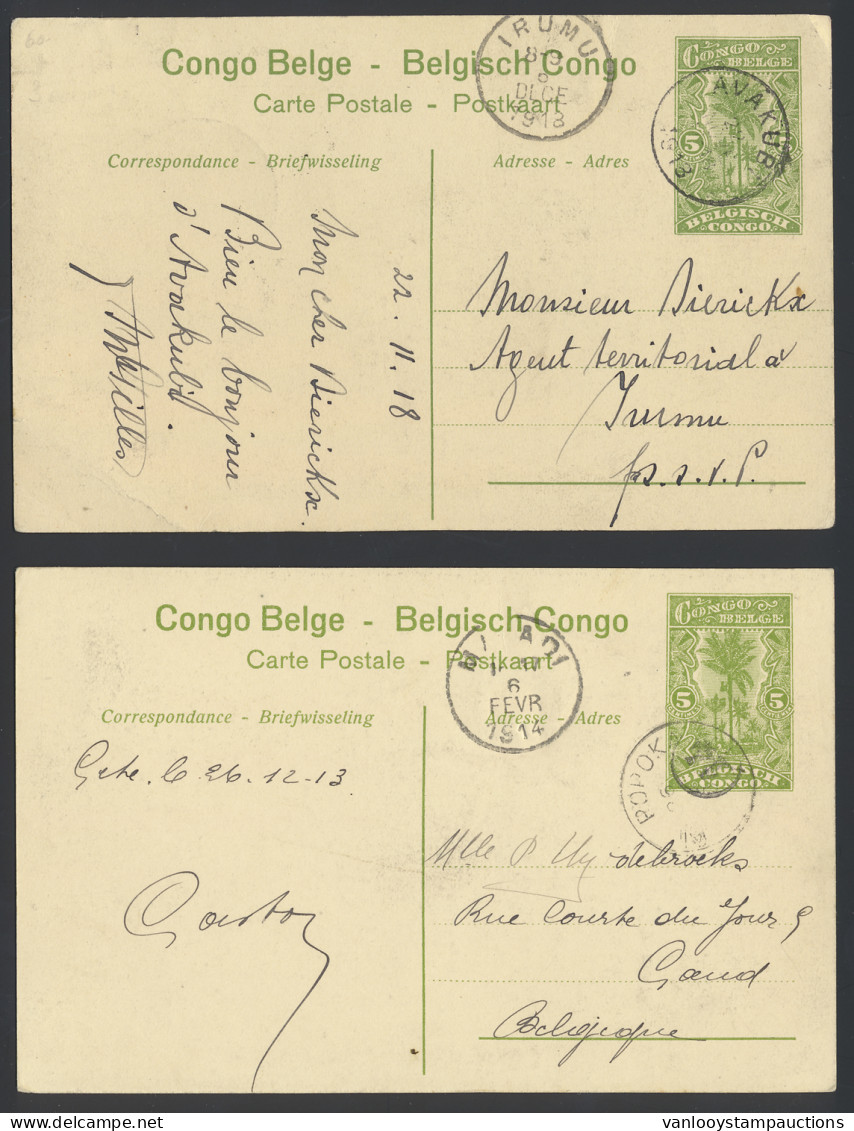 Congo Belge - Belgisch Congo
Carte Postale - Postkaart
Correspondance - Briefwisseling
Adresse - Adres
IRUMU
8-9
8
DECE
1918
CONGO
BELGE
5
BELGISCH
CONGO
AVAKUBI
22. 11. 18
Mon cher Dierickx
Bien le bonjour
d'Avakubi.
Monsieur Dierickx
Agent territorial à
Irumu
p.s.v.P.
Congo Belge - Belgisch Congo
Carte Postale - Postkaart
Correspondance - Briefwisseling
Adresse - Adres
6
FEVR
1914
CONGO
BELGE
5 5
BELGISCH
CONGO
POPOK
le 26.12-13
Gaston
Mlle
Rue Courte du Jour 9
Gand
Belgique
vanlooystampauctions